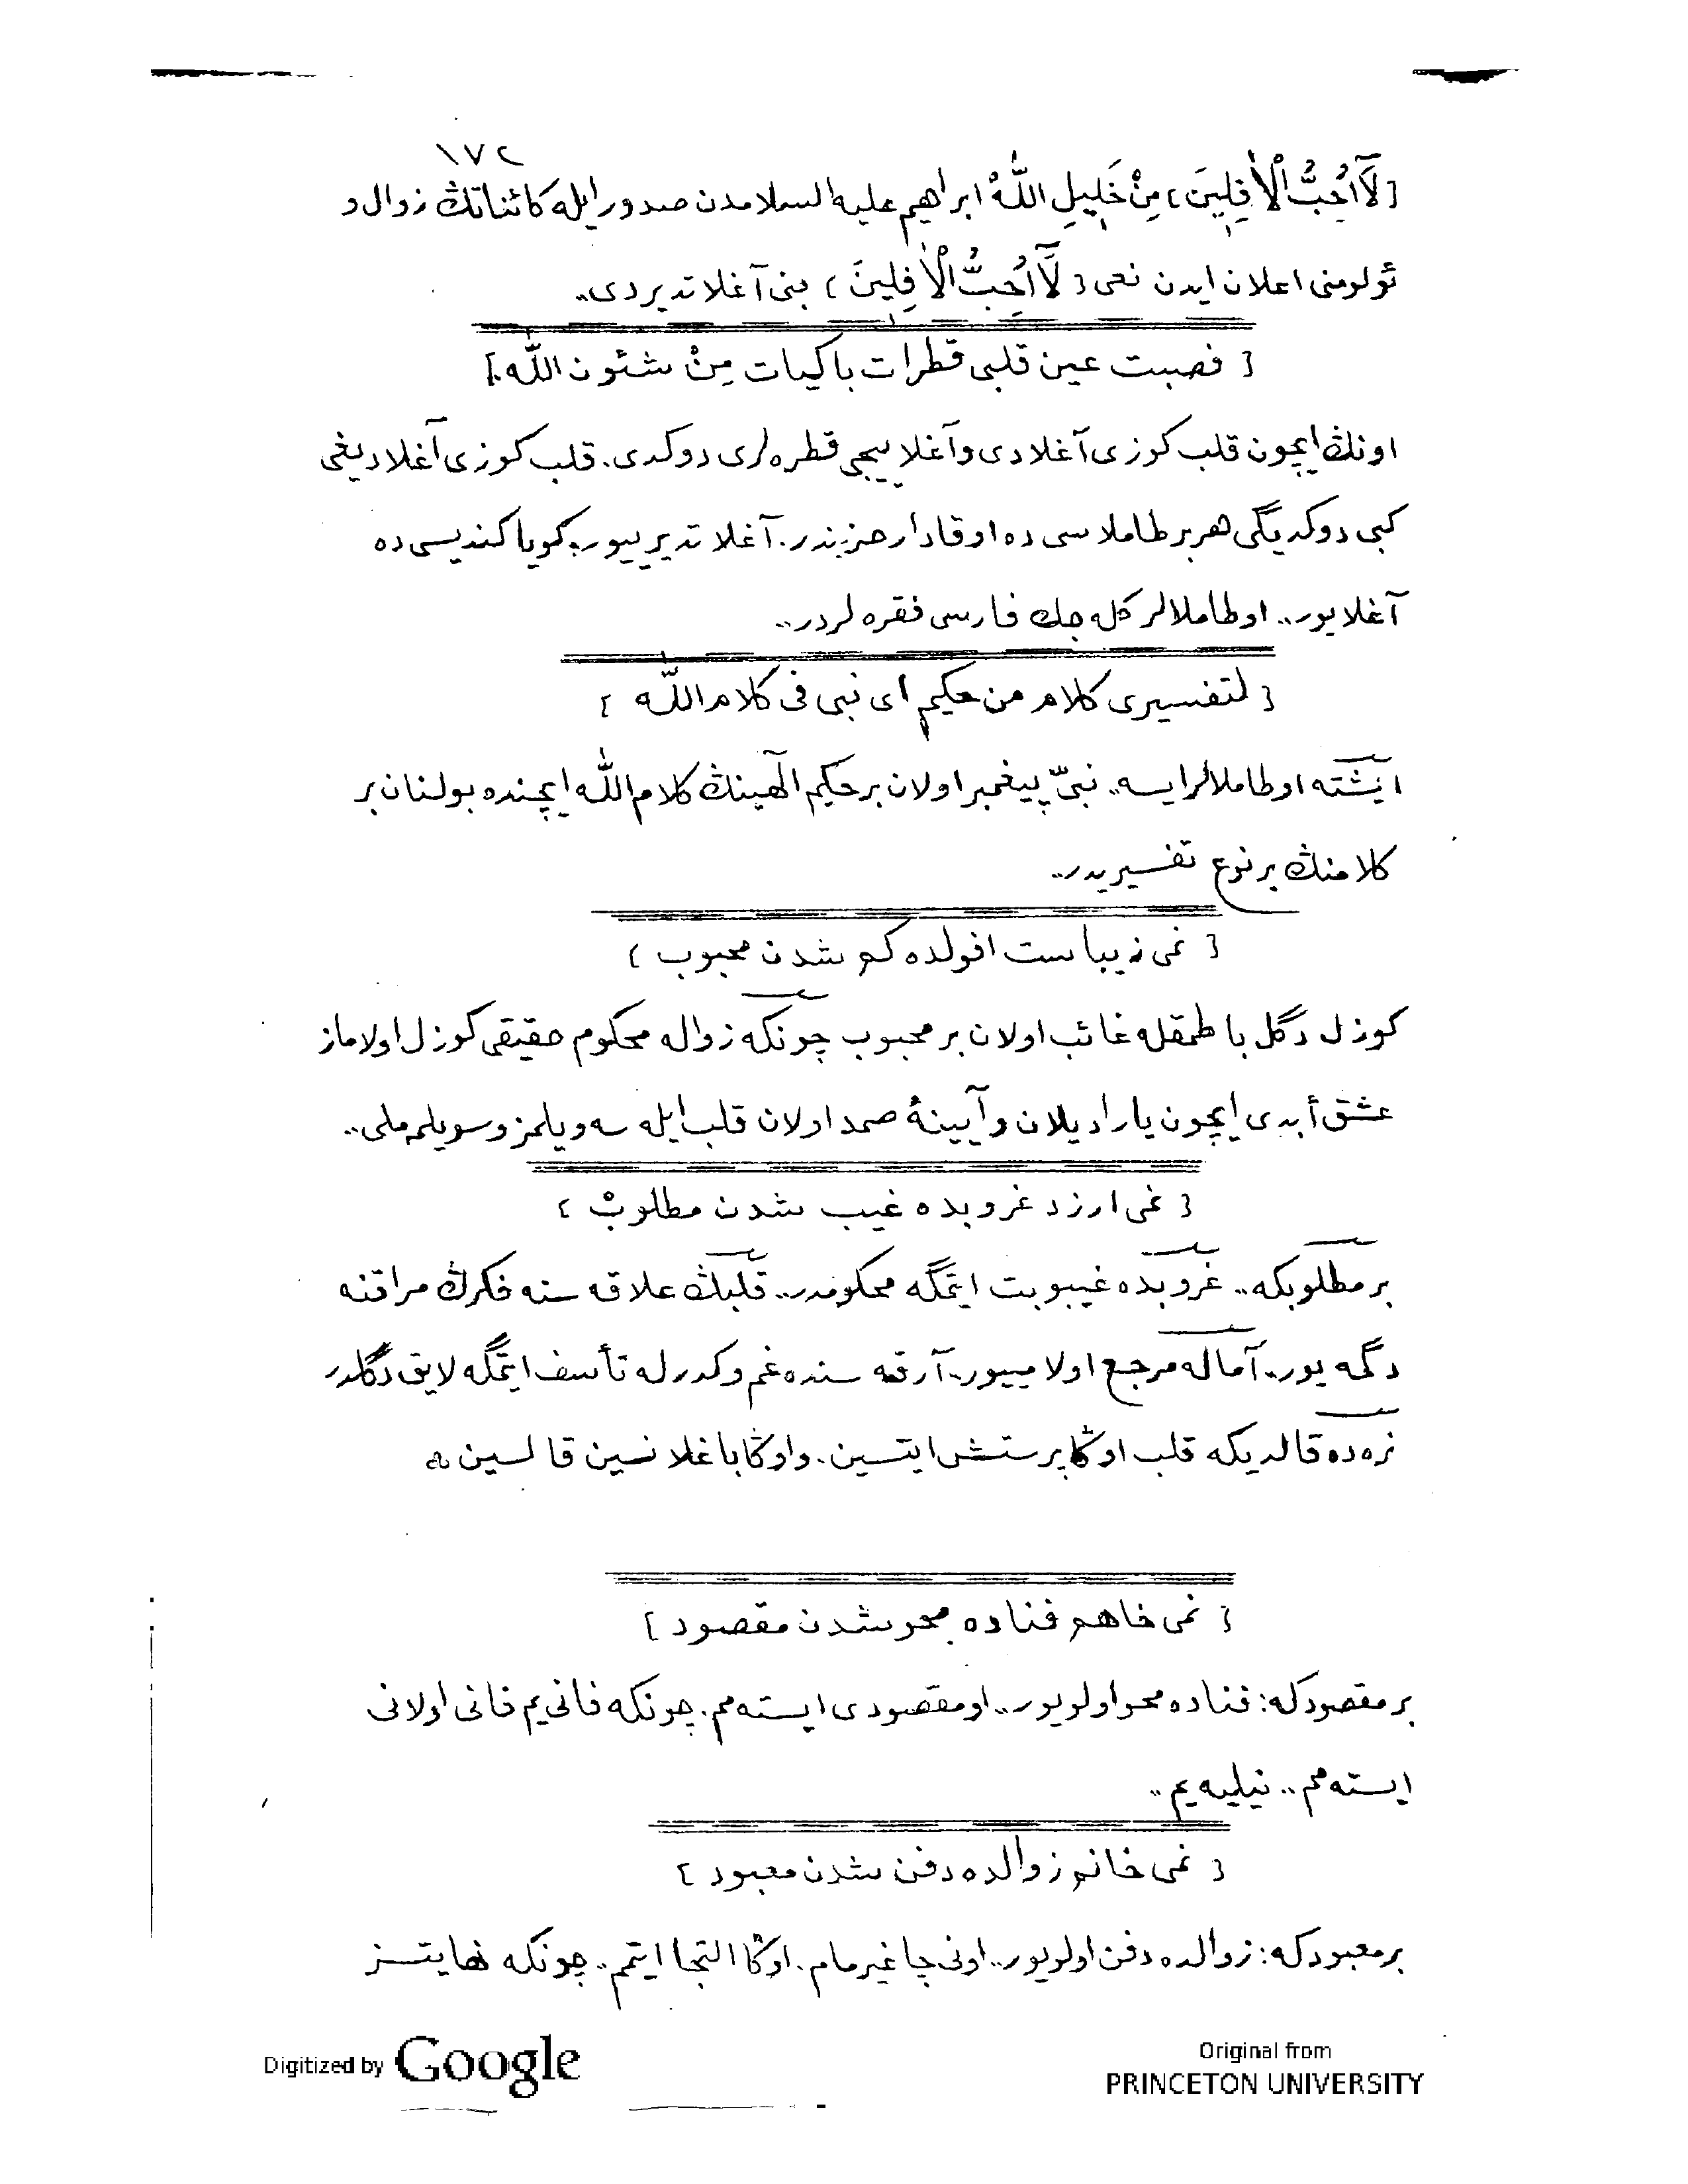 ١٧٢
[ لَٓا اُحِبُّ الْاٰفِلِينَ ] مِنْ خَلِيلِ اللّٰهْ ابراهيم عليه السلامدن صدور ايله كائناتڭ زوال و
ئولومنى اعلان ايدن نعى [ لَٓا اُحِبُّ الْاٰفِلِينَ ] بنى آغلاتديردى..
[ فصبت عين قلبى قطرات باكيات مِنْ شئون اللّٰه ]
اونڭ ايچون قلب كوزى آغلادى و آغلاييجى قطره لرى دوكدى. قلب كوزى آغلاديغى
كبى دوكديگى هر بر طاملاسى ده او قادار حزيندر. آغلاتديرييور. كويا كنديسى ده
آغلايور.. او طاملالر كله جك فارسى فقره لردر..
[ لتفسيرى كلام من حكيم اى نبى فى كلام اللّٰه ]
ايشته او طاملالر ايسه.. نبىّ پيغمبر اولان بر حكيم الٓهينڭ كلام اللّٰه ايچنده بولنان بر
كلامنڭ بر نوع تفسيريدر..
[ نمى زيباست افولده كم شدن محبوب ]
كوزل دگل باطمقله غائب اولان بر محبوب چونكه زواله محكوم حقيقى كوزل اولاماز
عشق أبدى ايچون ياراديلان و آيينۀ صمد اولان قلب ايله سه ويلمز و سويلمه ملى..
[ نمى ارزد غروبده غيب شدن مطلوبْ ]
بر مطلوبكه.. غروبده غيبوبت ايتمگه محكومدر.. قلبڭ علاقه سنه فكرڭ مراقنه
دگمه يور.. آماله مرجع اولامييور.. آرقه سنده غم و كدرله تأسف ايتمگه لايق دگلدر
نره ده قالديكه قلب اوڭا پرستش ايتسين. و اوڭا باغلانسين قالسين
[ نمى خاهم فناده محو شدن مقصود ]
بر مقصودكه: فناده محو اولويور.. او مقصودى ايسته مم. چونكه فانى يم فانى اولانى
ايسته مم.. نيليه يم..
[ نمى خانم زوالده دفن شدن معبود ]
بر معبودكه: زوالده دفن اولويور.. اونى چاغيرمام. اوڭا التجا ايتمم.. چونكه نهايتسز
Digitized by Google
Original from
PRINCETON UNIVERSITY